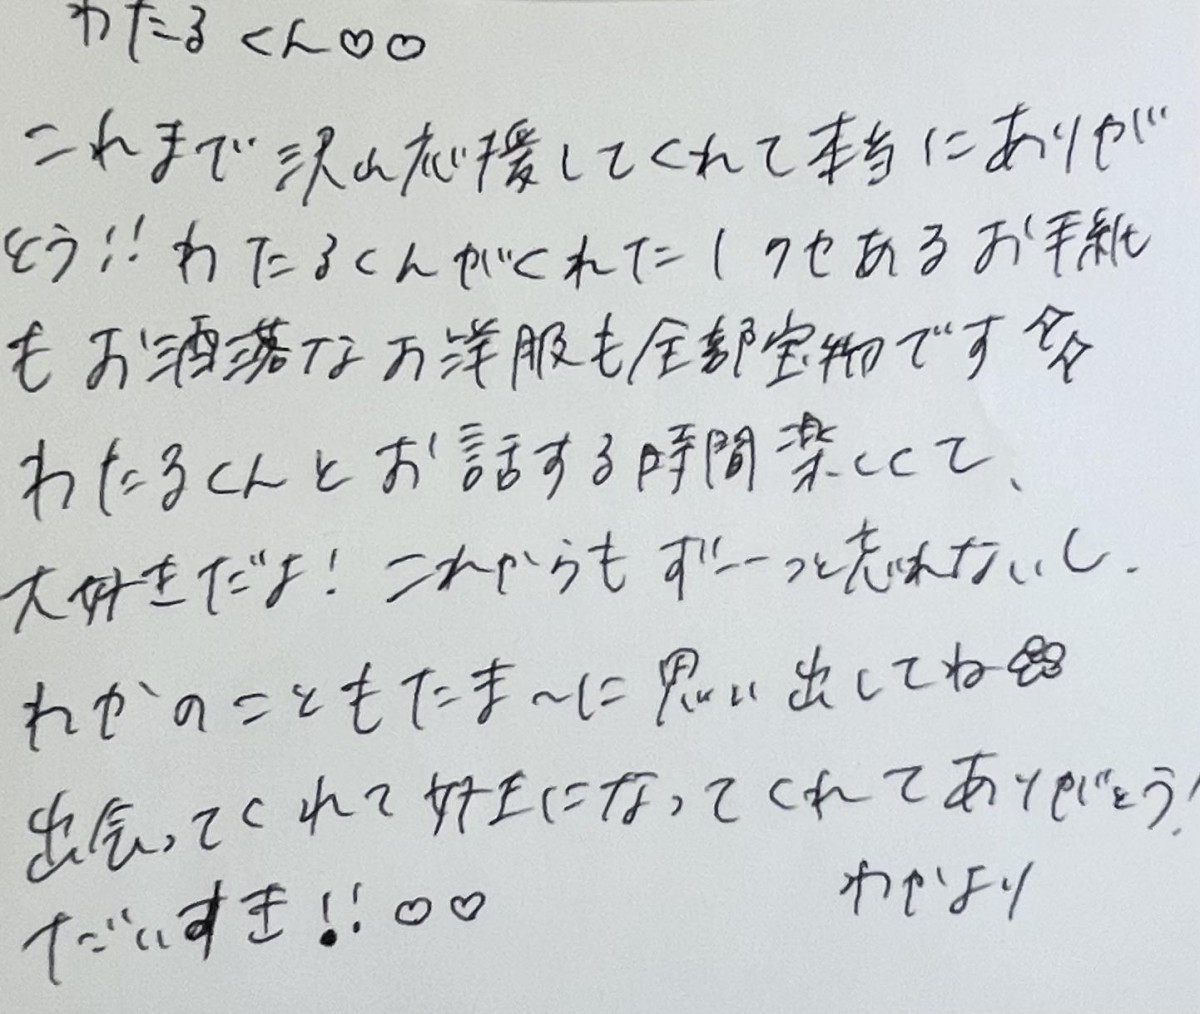 わたるくん♡♡
これまで沢山応援してくれて本当にありが
とう!!わたるくんがくれた1クセあるお手紙
もお洒落なお洋服も全部宝物です✧✧
わたるくんとお話する時間楽しくて、
大好きだよ!これからもずーーっと忘れないし、
わかのこともたま〜に思い出してね
出会ってくれて好きになってくれてありがとう!
だいすき!!♡♡
わかより